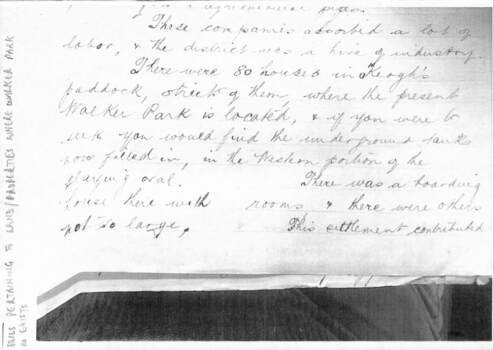 These companies absorbed a lot of
labor, & the district was a hive of industry.
There were 80 houses in Keogh's
paddock, streets of them, where the present
Walker Park is located, & if you were to
seek you would find the underground tanks
now filled in, in the Western portion of the
playing oval. There was a boarding
house there with rooms & there were others
not so large. This settlement contributed
PERTAINING TO LAND/PROPERTIES WHERE WALKER PARK
NO EXISTS